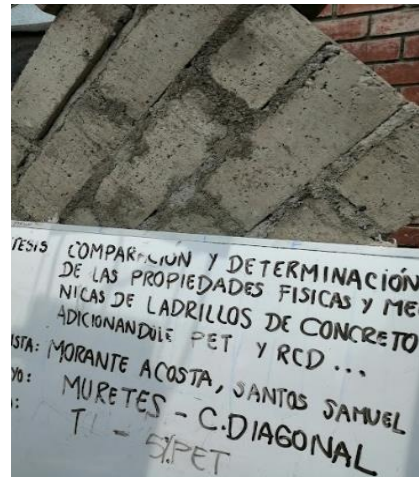 TESIS COMPARACIÓN Y DETERMINACIÓN
DE LAS PROPIEDADES FISICAS Y MEC
NICAS DE LADRILLOS DE CONCRETO
ADICIONANDOLE PET Y RCD ...
ISTA: MORANTE ACOSTA, SANTOS SAMUEL
YO: MURETES - C. DIAGONAL
5% PET